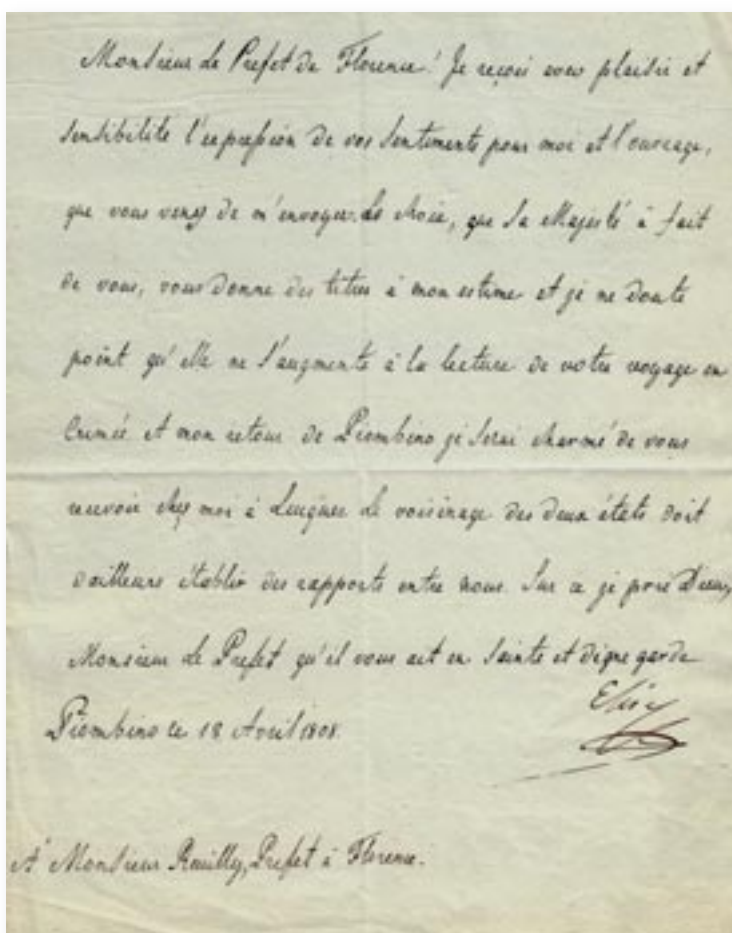 Monsieur le Prefet de Florence! Je reçois avec plaisir et
sensibilité l'expression de vos sentiments pour moi et l'ouvrage,
que vous venez de m'envoyer. Le choix, que Sa Majesté à fait
de vous, vous donne des titres à mon estime et je ne doute
point qu'elle ne s'augmente à la lecture de votre voyage en
Crimée et mon retour de Piombino je serai charmé de vous
recevoir chez moi à Lucques Le voisinage des deux états doit
d'ailleurs établir des rapports entre nous. Sur ce je prie Dieu,
Monsieur le Prefet qu'il vous ait en sainte et digne garde
Piombino le 18 Avril 1808.
Elisa
A Monsieur Reuilly, Prefet à Florence.